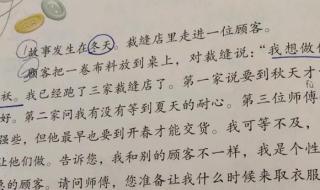 ①故事发生在冬天。裁缝店里走进一位顾客。
②顾客把一卷布料放到桌上，对裁缝说："我想做件
袄。我已经跑了三家裁缝店了。第一家说要到秋天才
好。第二家问我有没有等到夏天的耐心。第三位师傅
强些，但他最早也要到开春才能交货。我可等不及，
让他们做。告诉您，我和别的顾客不一样，我是个性
的顾客。请问师傅，您准备让我什么时候来取衣服